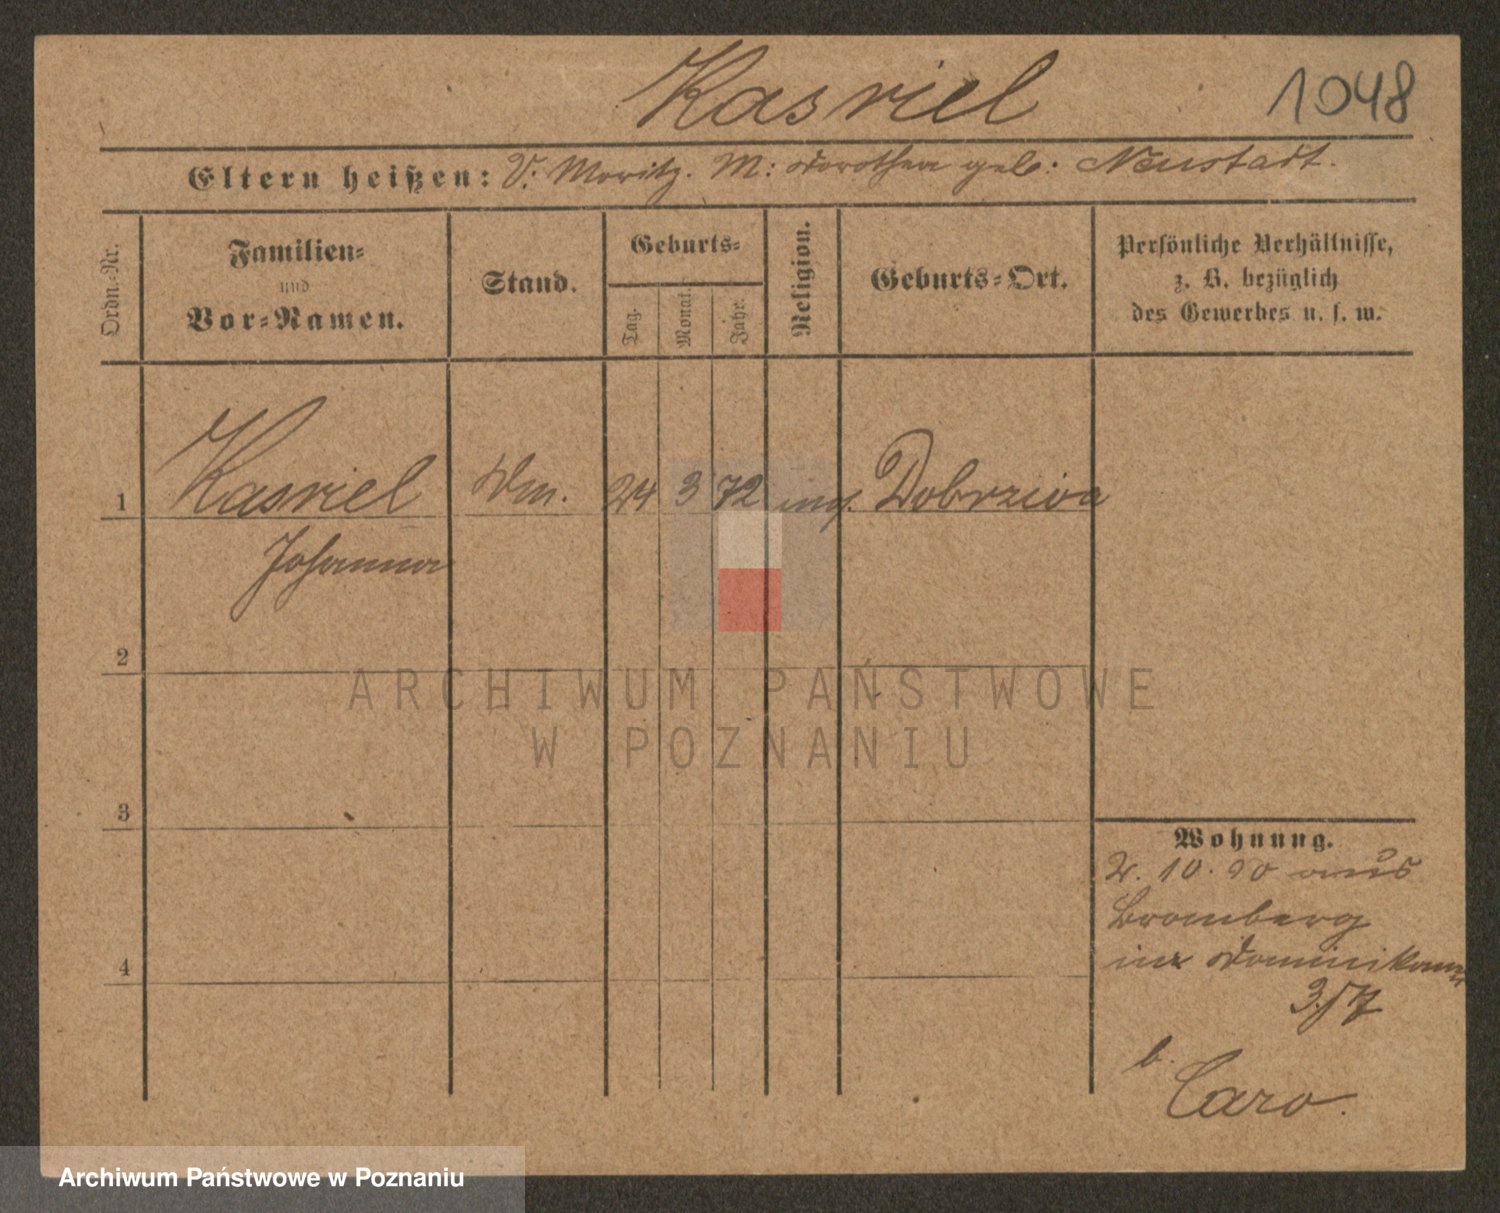 Kasriel 1048
Eltern heißen: V: Moritz. M: Dorothea geb: Neustadt.
Ordn.-Nr. Familien- und Vor-Namen. Stand. Geburts- Tag. Monat. Jahr. Religion. Geburts-Ort. Persönliche Verhältnisse, z. B. bezüglich des Gewerbes u. s. w.
1 Kasriel 24 3 72 Dobrzica
Johanna
2
ARCHIWUM PAŃSTWOWE
W POZNANIU
3
Wohnung.
2. 10. 90 aus
Bromberg
4
in Dominikaner
3
b.
Caro.
Archiwum Państwowe w Poznaniu